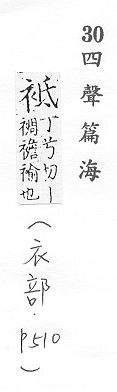 30四聲篇海
袛丁兮切丨
裯襜褕也
（衣部.p510）